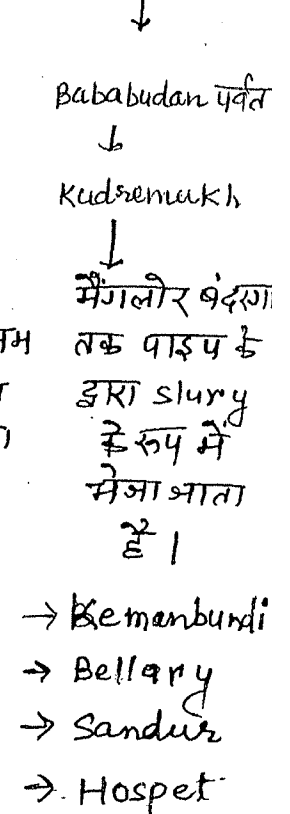 ↓
Bababudan पर्वत
↓
Kudremukh
↓
मैंगलोर बंदरगा
तक पाइप के
द्वारा slury
के रूप में
भेजा जाता
है।
→ Kemanbundi
→ Bellary
→ Sandur
→. Hospet